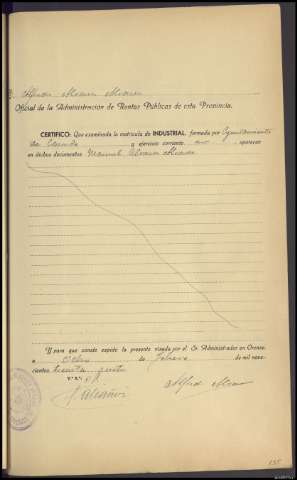 D. Alfredo Alvarez Alvarez
Oficial de la Administración de Rentas Públicas de esta Provincia.
CERTIFICO: Que examinada la matrícula de INDUSTRIAL, formada por Ayuntamiento
de y ejercicio corriente, no aparece
en dichos documentos Manuel Alvarez
Y para que conste expido la presente visada por el Sr. Administrador en Orense
a Ocho de Febrero de mil nove-
cientos
V.º B.º
Alfredo Alvarez